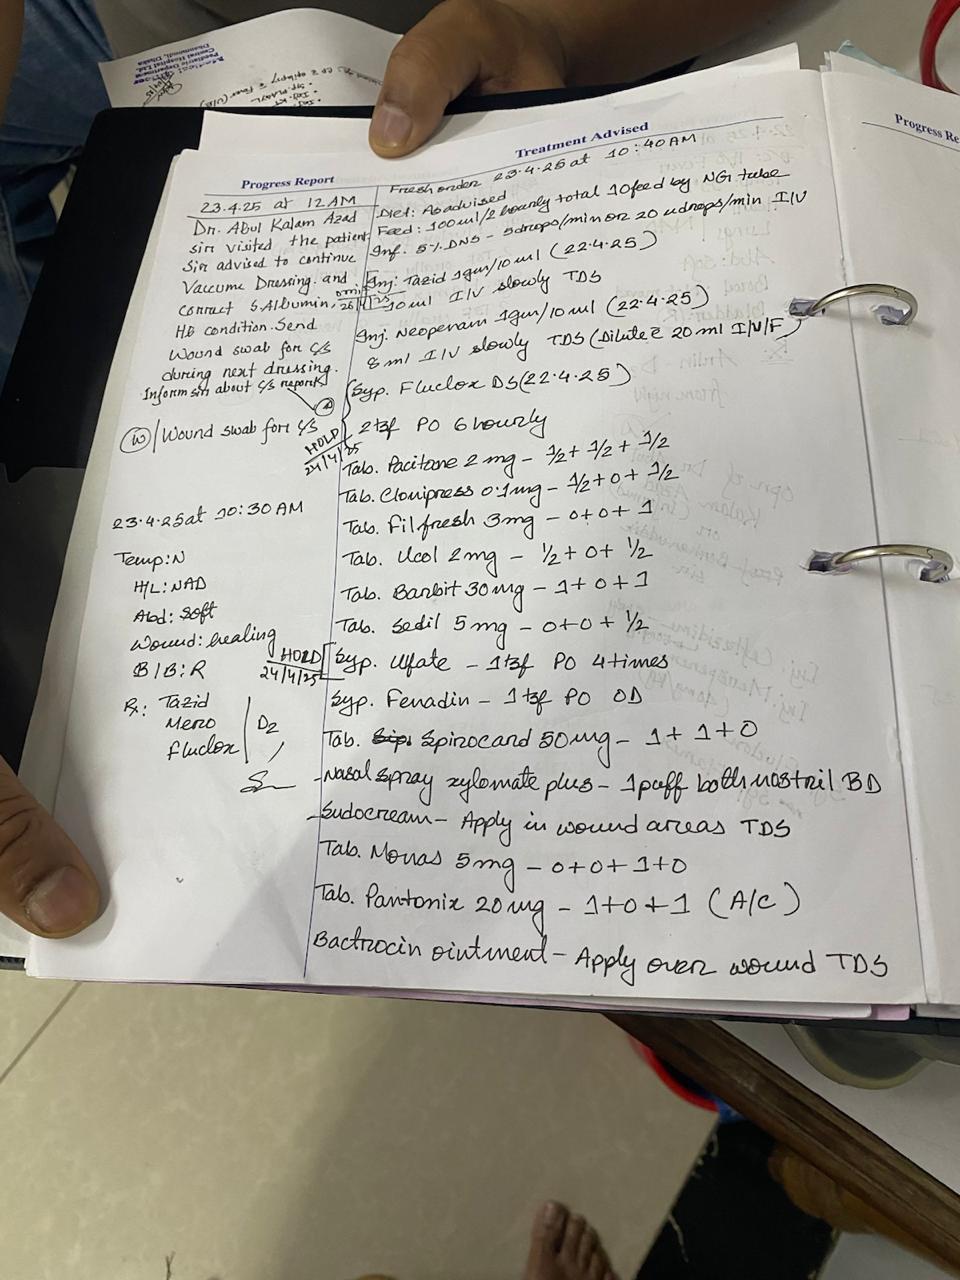 Progress Report
23.4.25 at 12 AM
Dr. Abul Kalam Azad
sir visited the patient
Sir advised to continue
Vaccume Dressing. and
correct S. Albumin,
HB condition. Send
Wound swab for c/s
during next dressing.
Inform sir about c/s report
W/ Wound swab for c/s
23.4.25 at 10:30 AM
Temp: N
H/L: NAD
Abd: soft
Wound: healing
B/B: R
Rx: Tazid
Mero
Fluclox
D2
Treatment Advised
Fresh order 23.4.25 at 10:40 AM
Diet: As advised
Feed: 100 ml/2 hourly total 10 feed by NG tube
Inf. 5% DNS - 5drops/min or 20 udrops/min I/V
Inj: Tazid 1gm/10 ml (22.4.25)
10 ml I/V slowly TDS
Inj. Neopenam 1gm/10 ml (22.4.25)
8 ml I/V slowly TDS (Dilute c̄ 20 ml I/V/F)
Syp. Fluclox DS (22.4.25)
2 tsf PO 6 hourly
HOLD
24/4/25
Tab. Pacitane 2 mg - 1/2 + 1/2 + 1/2
Tab. Clonipress 0.1mg - 1/2 + 0 + 1/2
Tab. Filfresh 3mg - 0+0+1
Tab. Ucol 2 mg - 1/2 + 0 + 1/2
Tab. Barbit 30 mg - 1+0+1
Tab. Sedil 5 mg - 0+0+1/2
HOLD
24/4/25
Syp. Ulfate - 1 tsf PO 4 times
Syp. Fenadin - 1 tsf PO OD
Tab. Spirocard 50 mg - 1+1+0
-Nasal spray xylomate plus - 1 puff both nostril BD
-Sudocream - Apply in wound areas TDS
Tab. Monas 5 mg - 0+0+1+0
Tab. Pantonix 20 mg - 1+0+1 (A/C)
Bactrocin ointment - Apply over wound TDS
Progress Re